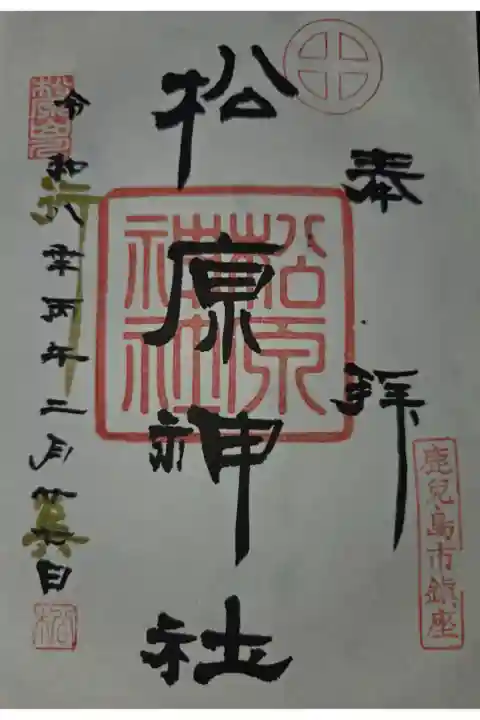 奉拝
鹿兒島市鎮座
松原神社
松原神社
令和八年丙午二月廿日